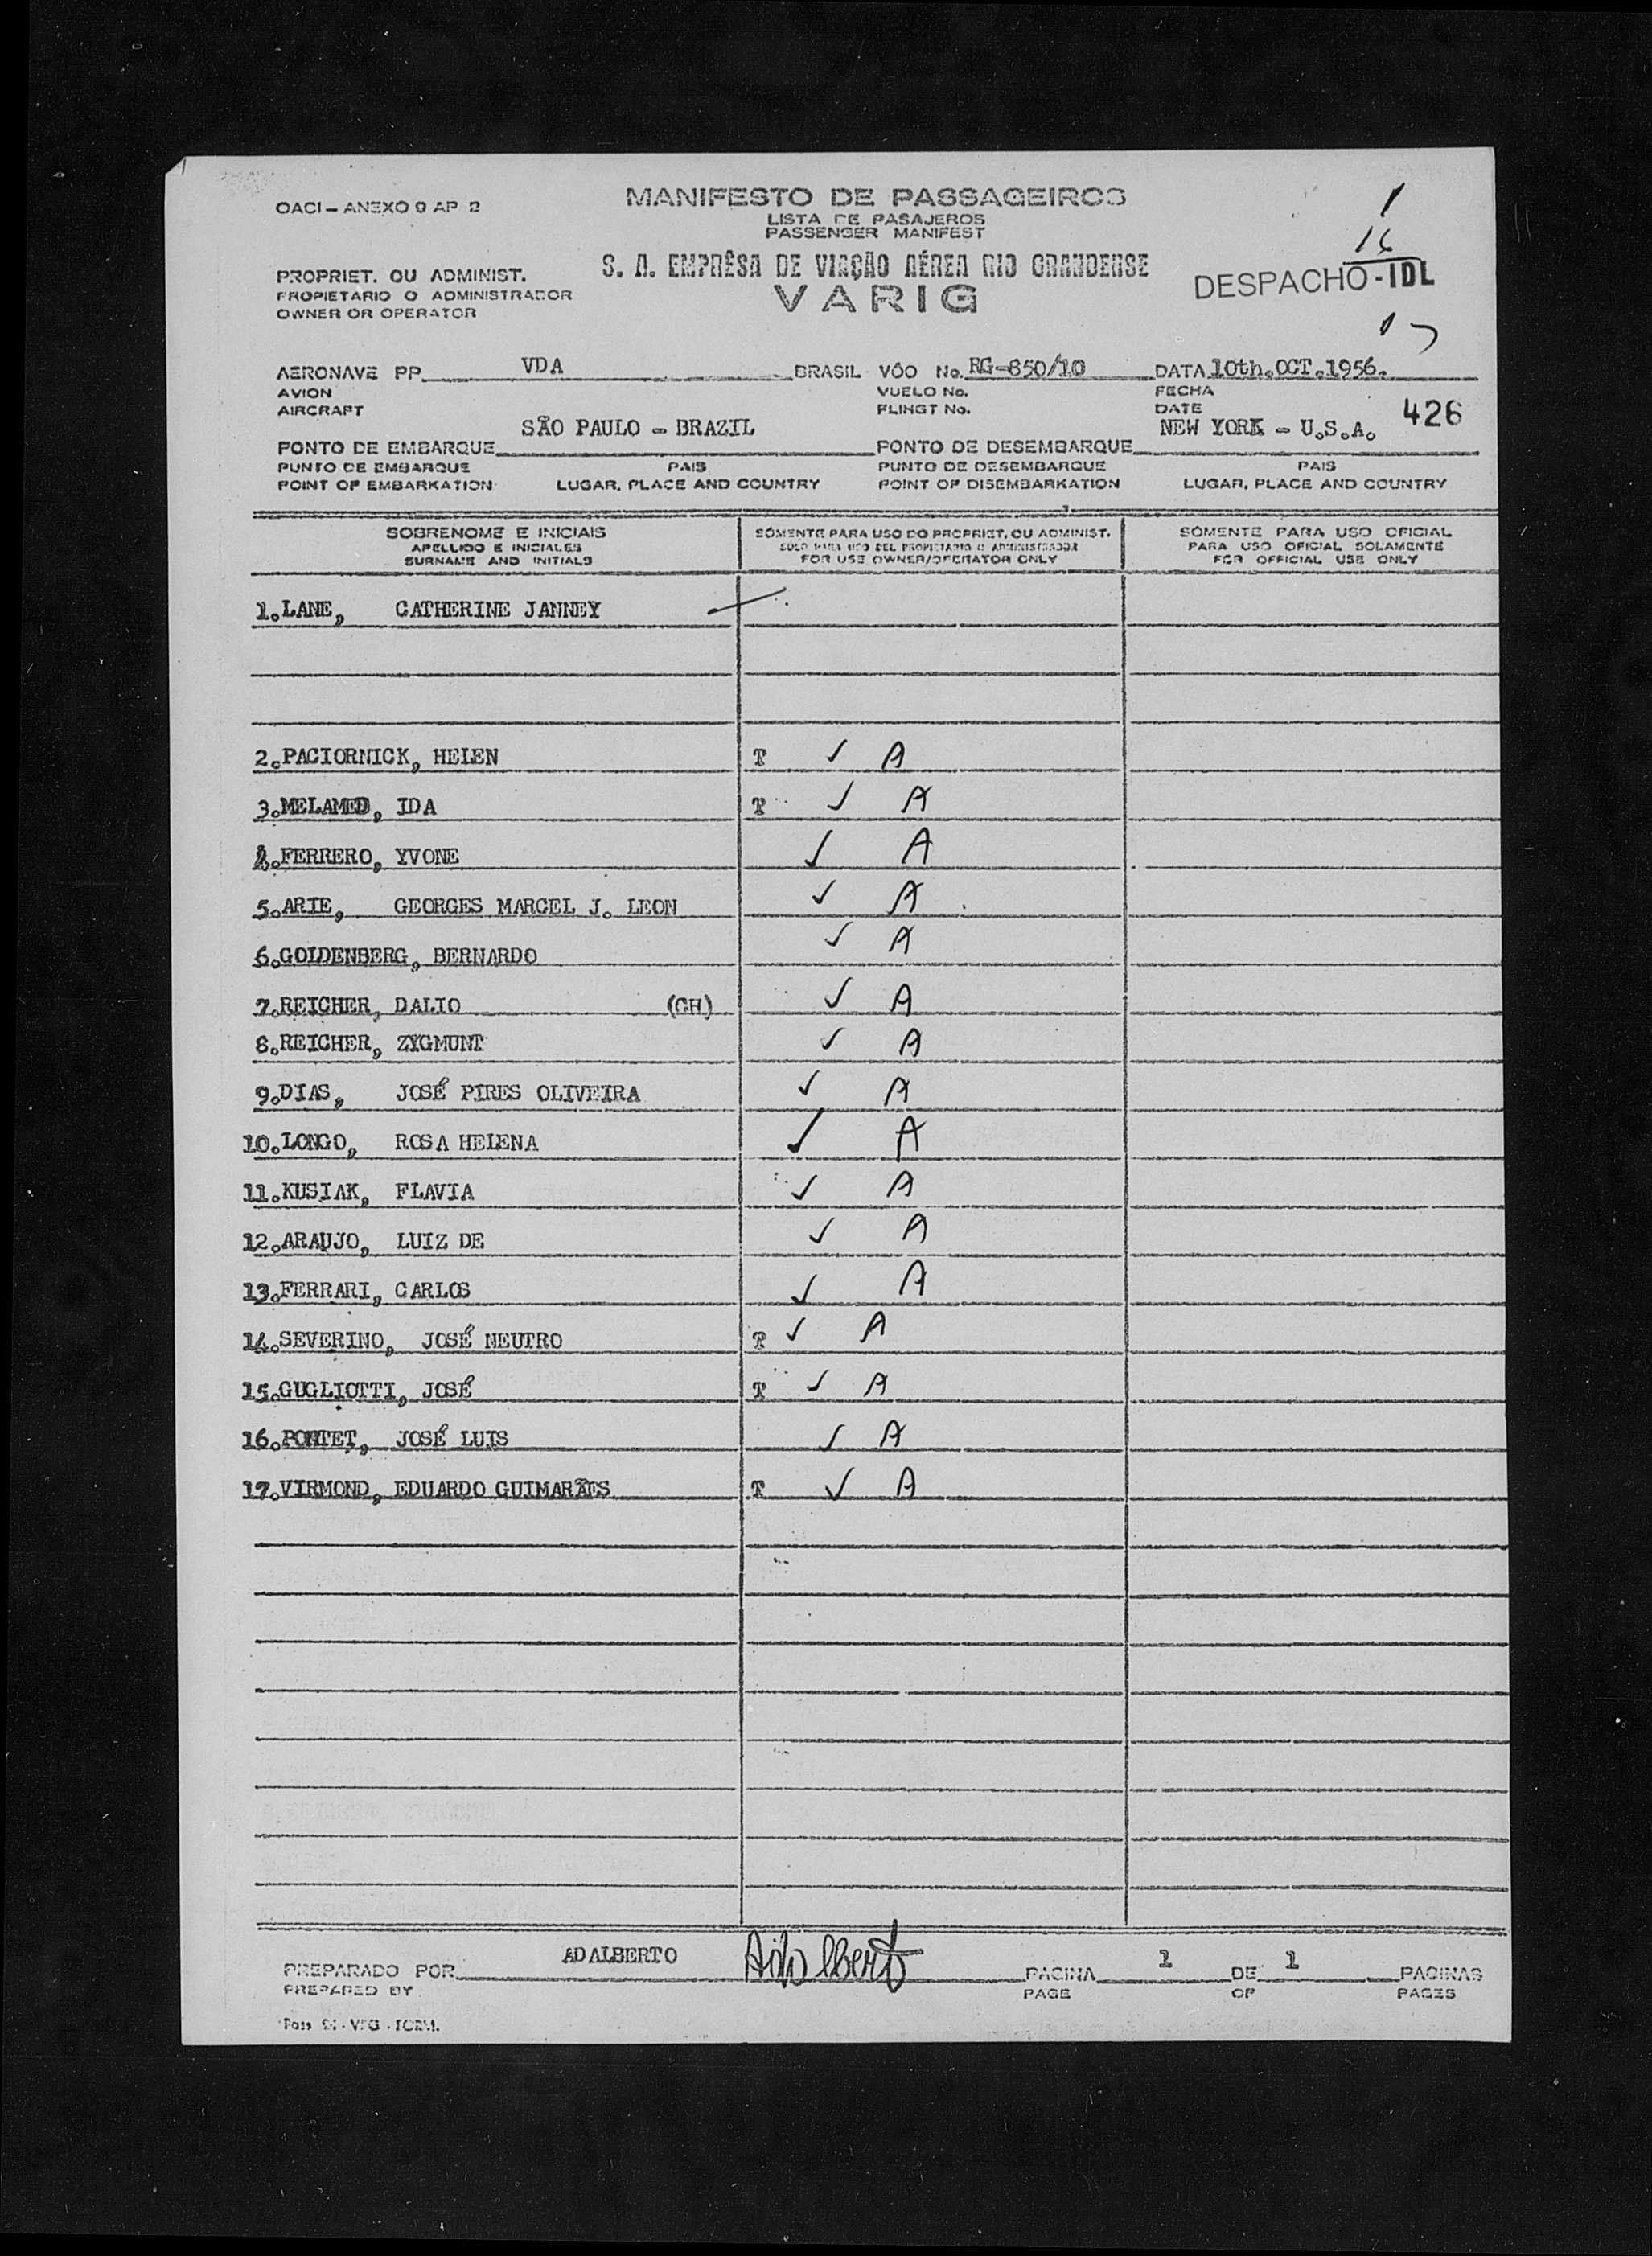 OACI - ANEXO 9 AP 2
MANIFESTO DE PASSAGEIROS
LISTA DE PASAJEROS
PASSENGER MANIFEST
1
16
DESPACHO-IDL
17
PROPRIET. OU ADMINIST.
PROPIETARIO O ADMINISTRADOR
OWNER OR OPERATOR
S. A. EMPRÊSA DE VIAÇÃO AÉREA RIO GRANDENSE
VARIG
AERONAVE PP VDA BRASIL VÔO No. RG-850/10 DATA 10th.OCT.1956.
AVION VUELO No. FECHA
AIRCRAFT FLIHGT No. DATE
426
SÃO PAULO - BRAZIL NEW YORK - U.S.A.
PONTO DE EMBARQUE PONTO DE DESEMBARQUE
PUNTO DE EMBARQUE PAIS PUNTO DE DESEMBARQUE PAIS
POINT OF EMBARKATION LUGAR, PLACE AND COUNTRY POINT OF DISEMBARKATION LUGAR, PLACE AND COUNTRY
SOBRENOME E INICIAIS SÓMENTE PARA USO DO PROPRIET. OU ADMINIST. SÓMENTE PARA USO OFICIAL
APELLIDO E INICIALES SOLO PARA USO DEL PROPIETARIO O ADMINISTRADOR PARA USO OFICIAL SOLAMENTE
SURNAME AND INITIALS FOR USE OWNER/OPERATOR ONLY FOR OFFICIAL USE ONLY
1.LANE, CATHERINE JANNEY
2.PACIORNICK, HELEN T ✓ A
3.MELAMED, IDA T ✓ A
4.FERRERO, YVONE ✓ A
5.ARIE, GEORGES MARCEL J. LEON ✓ A
6.GOLDENBERG, BERNARDO ✓ A
7.REICHER, DALIO (CH) ✓ A
8.REICHER, ZYGMUNT ✓ A
9.DIAS, JOSÉ PIRES OLIVEIRA ✓ A
10.LONGO, ROSA HELENA ✓ A
11.KUSIAK, FLAVIA ✓ A
12.ARAUJO, LUIZ DE ✓ A
13.FERRARI, CARLOS ✓ A
14.SEVERINO, JOSÉ NEUTRO T ✓ A
15.GUGLIOTTI, JOSÉ T ✓ A
16.PONTET, JOSÉ LUIS ✓ A
17.VIRMOND, EDUARDO GUIMARÃES T ✓ A
PREPARADO POR ADALBERTO Adalberto PAGINA 1 DE 1 PAGINAS
PREPARED BY PAGE OF PAGES